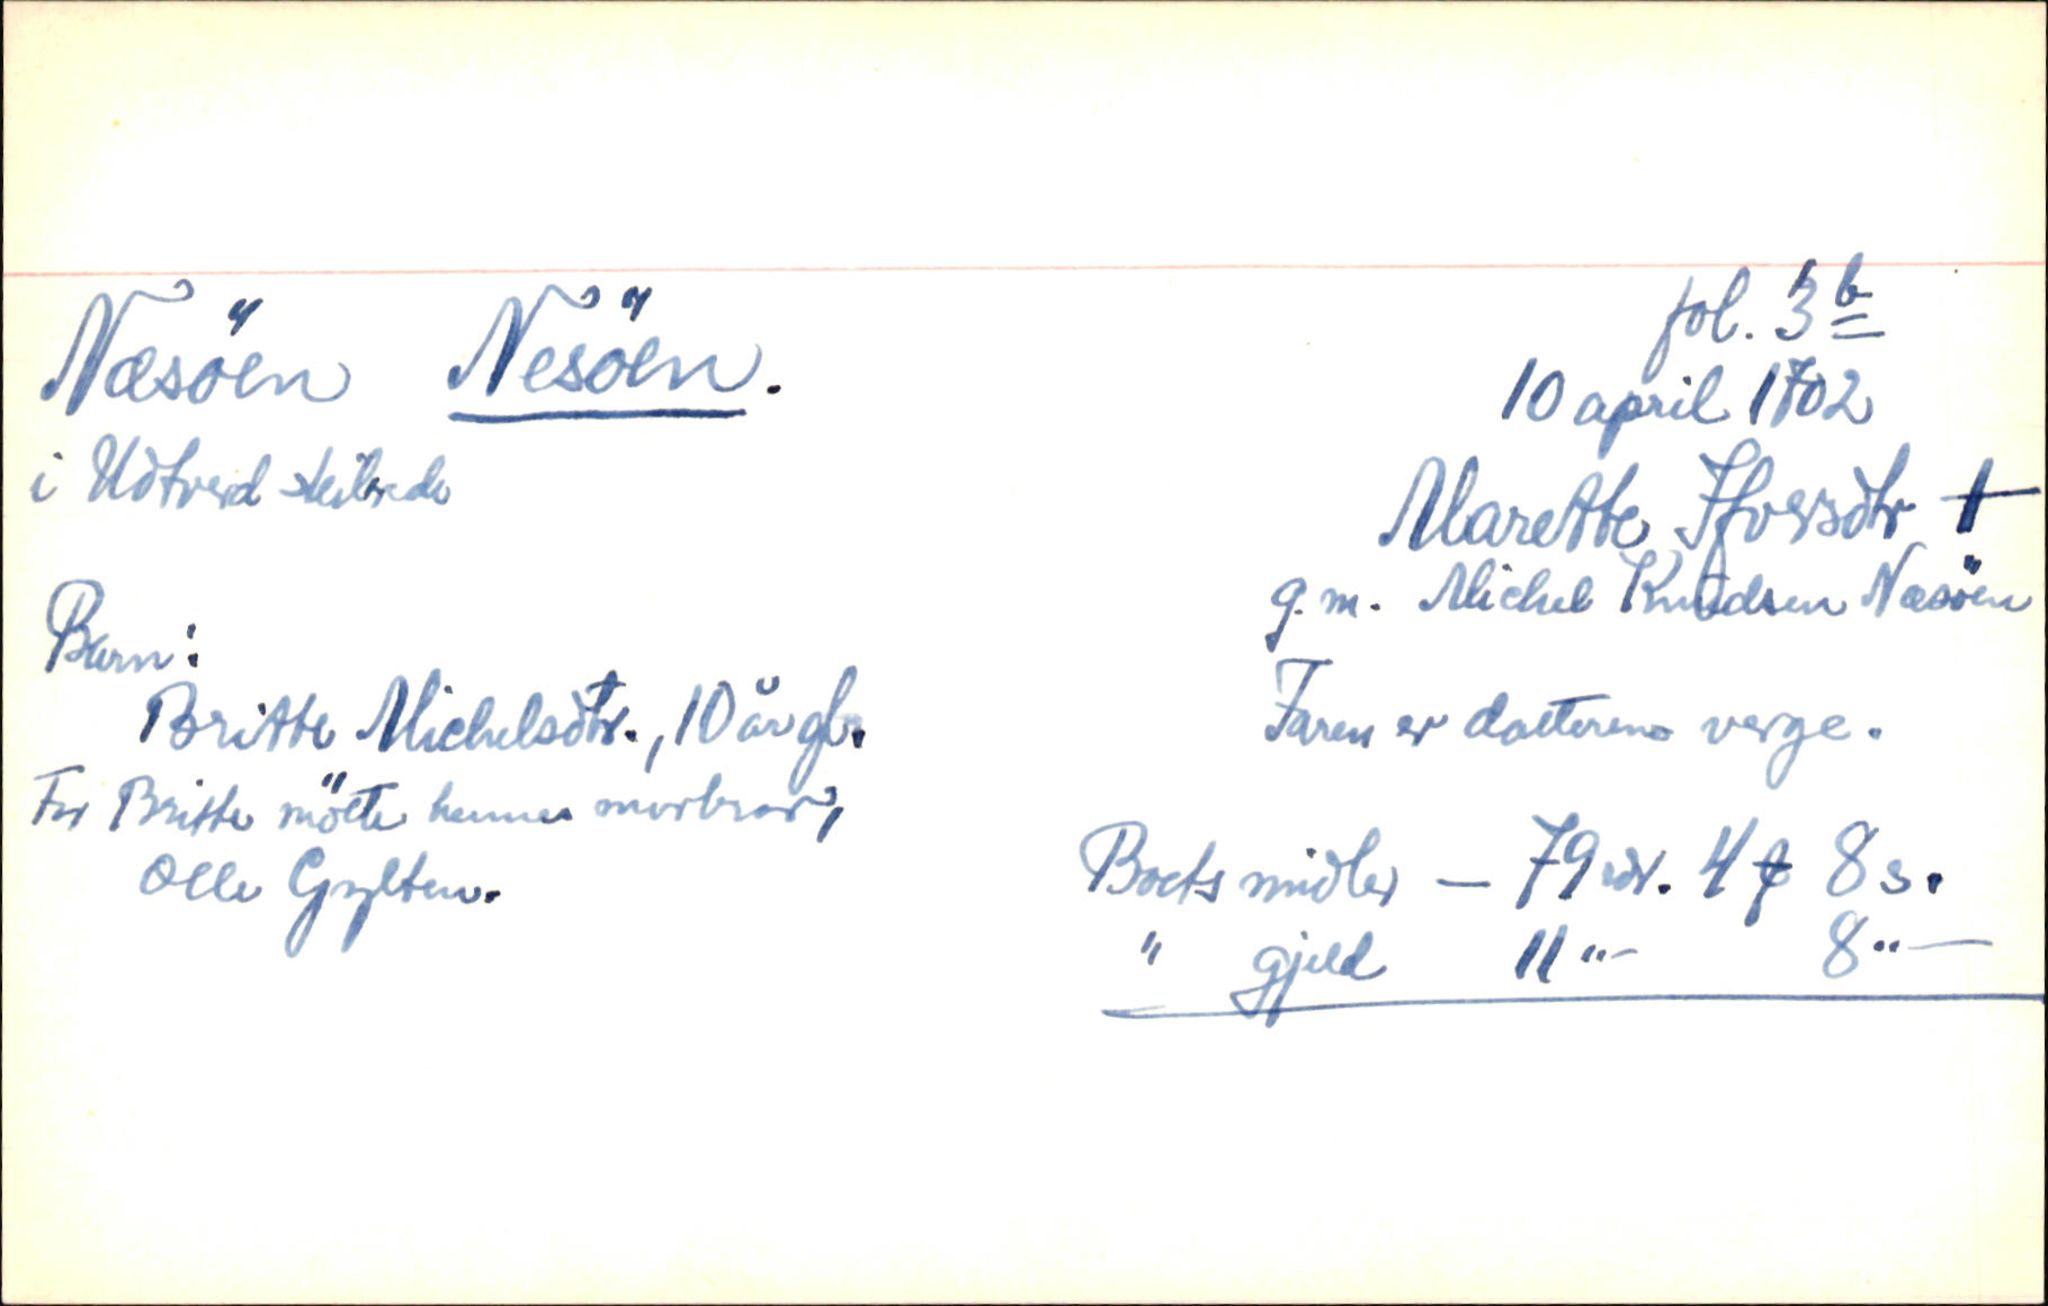 Næsöen Nesöen.
fol. 3 b
10 april 1702
i Udtverd skibrede
Marette Ifversdtr †
g.m. Michel Knudsen Næsöen
Barn:
Britte Michelsdtr., 10 år gl.
Faren er datterens verge.
For Britte mötte hennes morbror,
Olle Gylten.
Boets midler — 79 rdr. 4 ₰ 8 s.
" gjeld 11 " - 8 " —